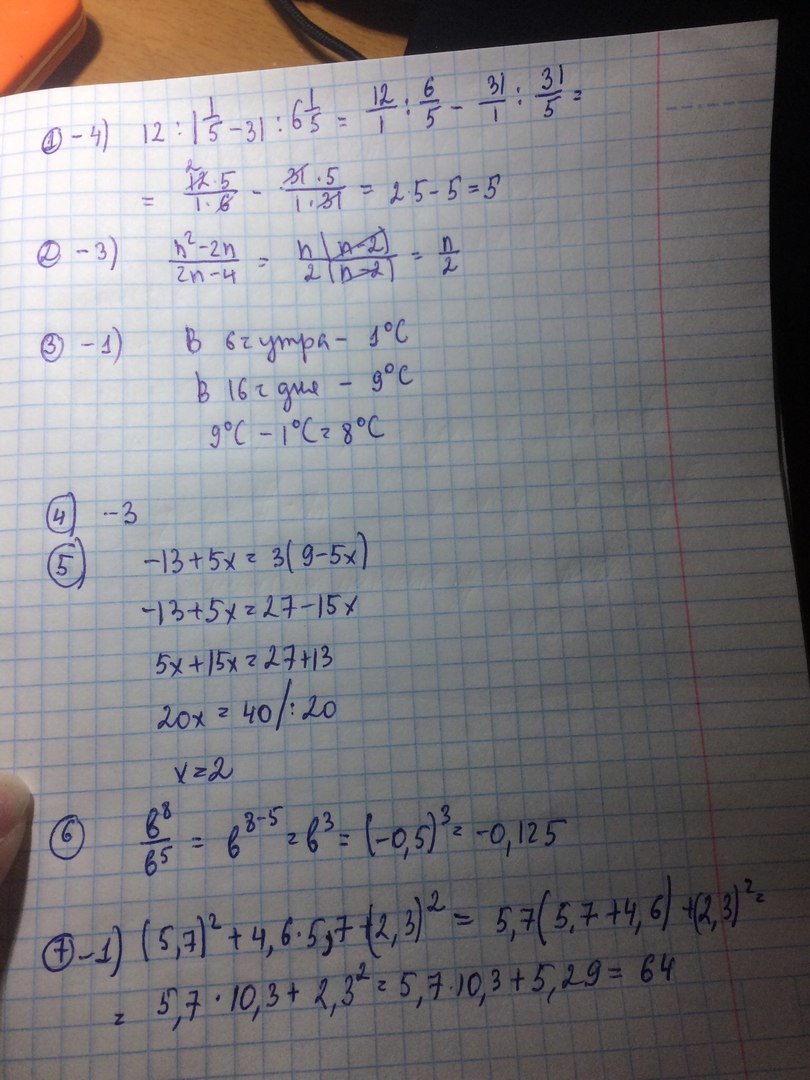 ① - 4) 12 : 1 1/5 - 31 : 6 1/5 = 12/1 : 6/5 - 31/1 : 31/5 =
= 12·5/1·6 - 31·5/1·31 = 2·5-5=5
② - 3) n²-2n/2n-4 = n(n-2)/2(n-2) = n/2
③ - 1) В 6ч утра - 1°C
В 16ч дня - 9°C
9°C - 1°C = 8°C
④ -3
⑤ -13+5x = 3(9-5x)
-13+5x=27-15x
5x+15x=27+13
20x = 40 /:20
x=2
⑥ в⁸/в⁵ = в⁸⁻⁵ = в³ = (-0,5)³ = -0,125
⑦ - 1) (5,7)² + 4,6·5,7+(2,3)² = 5,7(5,7+4,6)+(2,3)² =
= 5,7·10,3+ 2,3² = 5,7·10,3+5,29 = 64